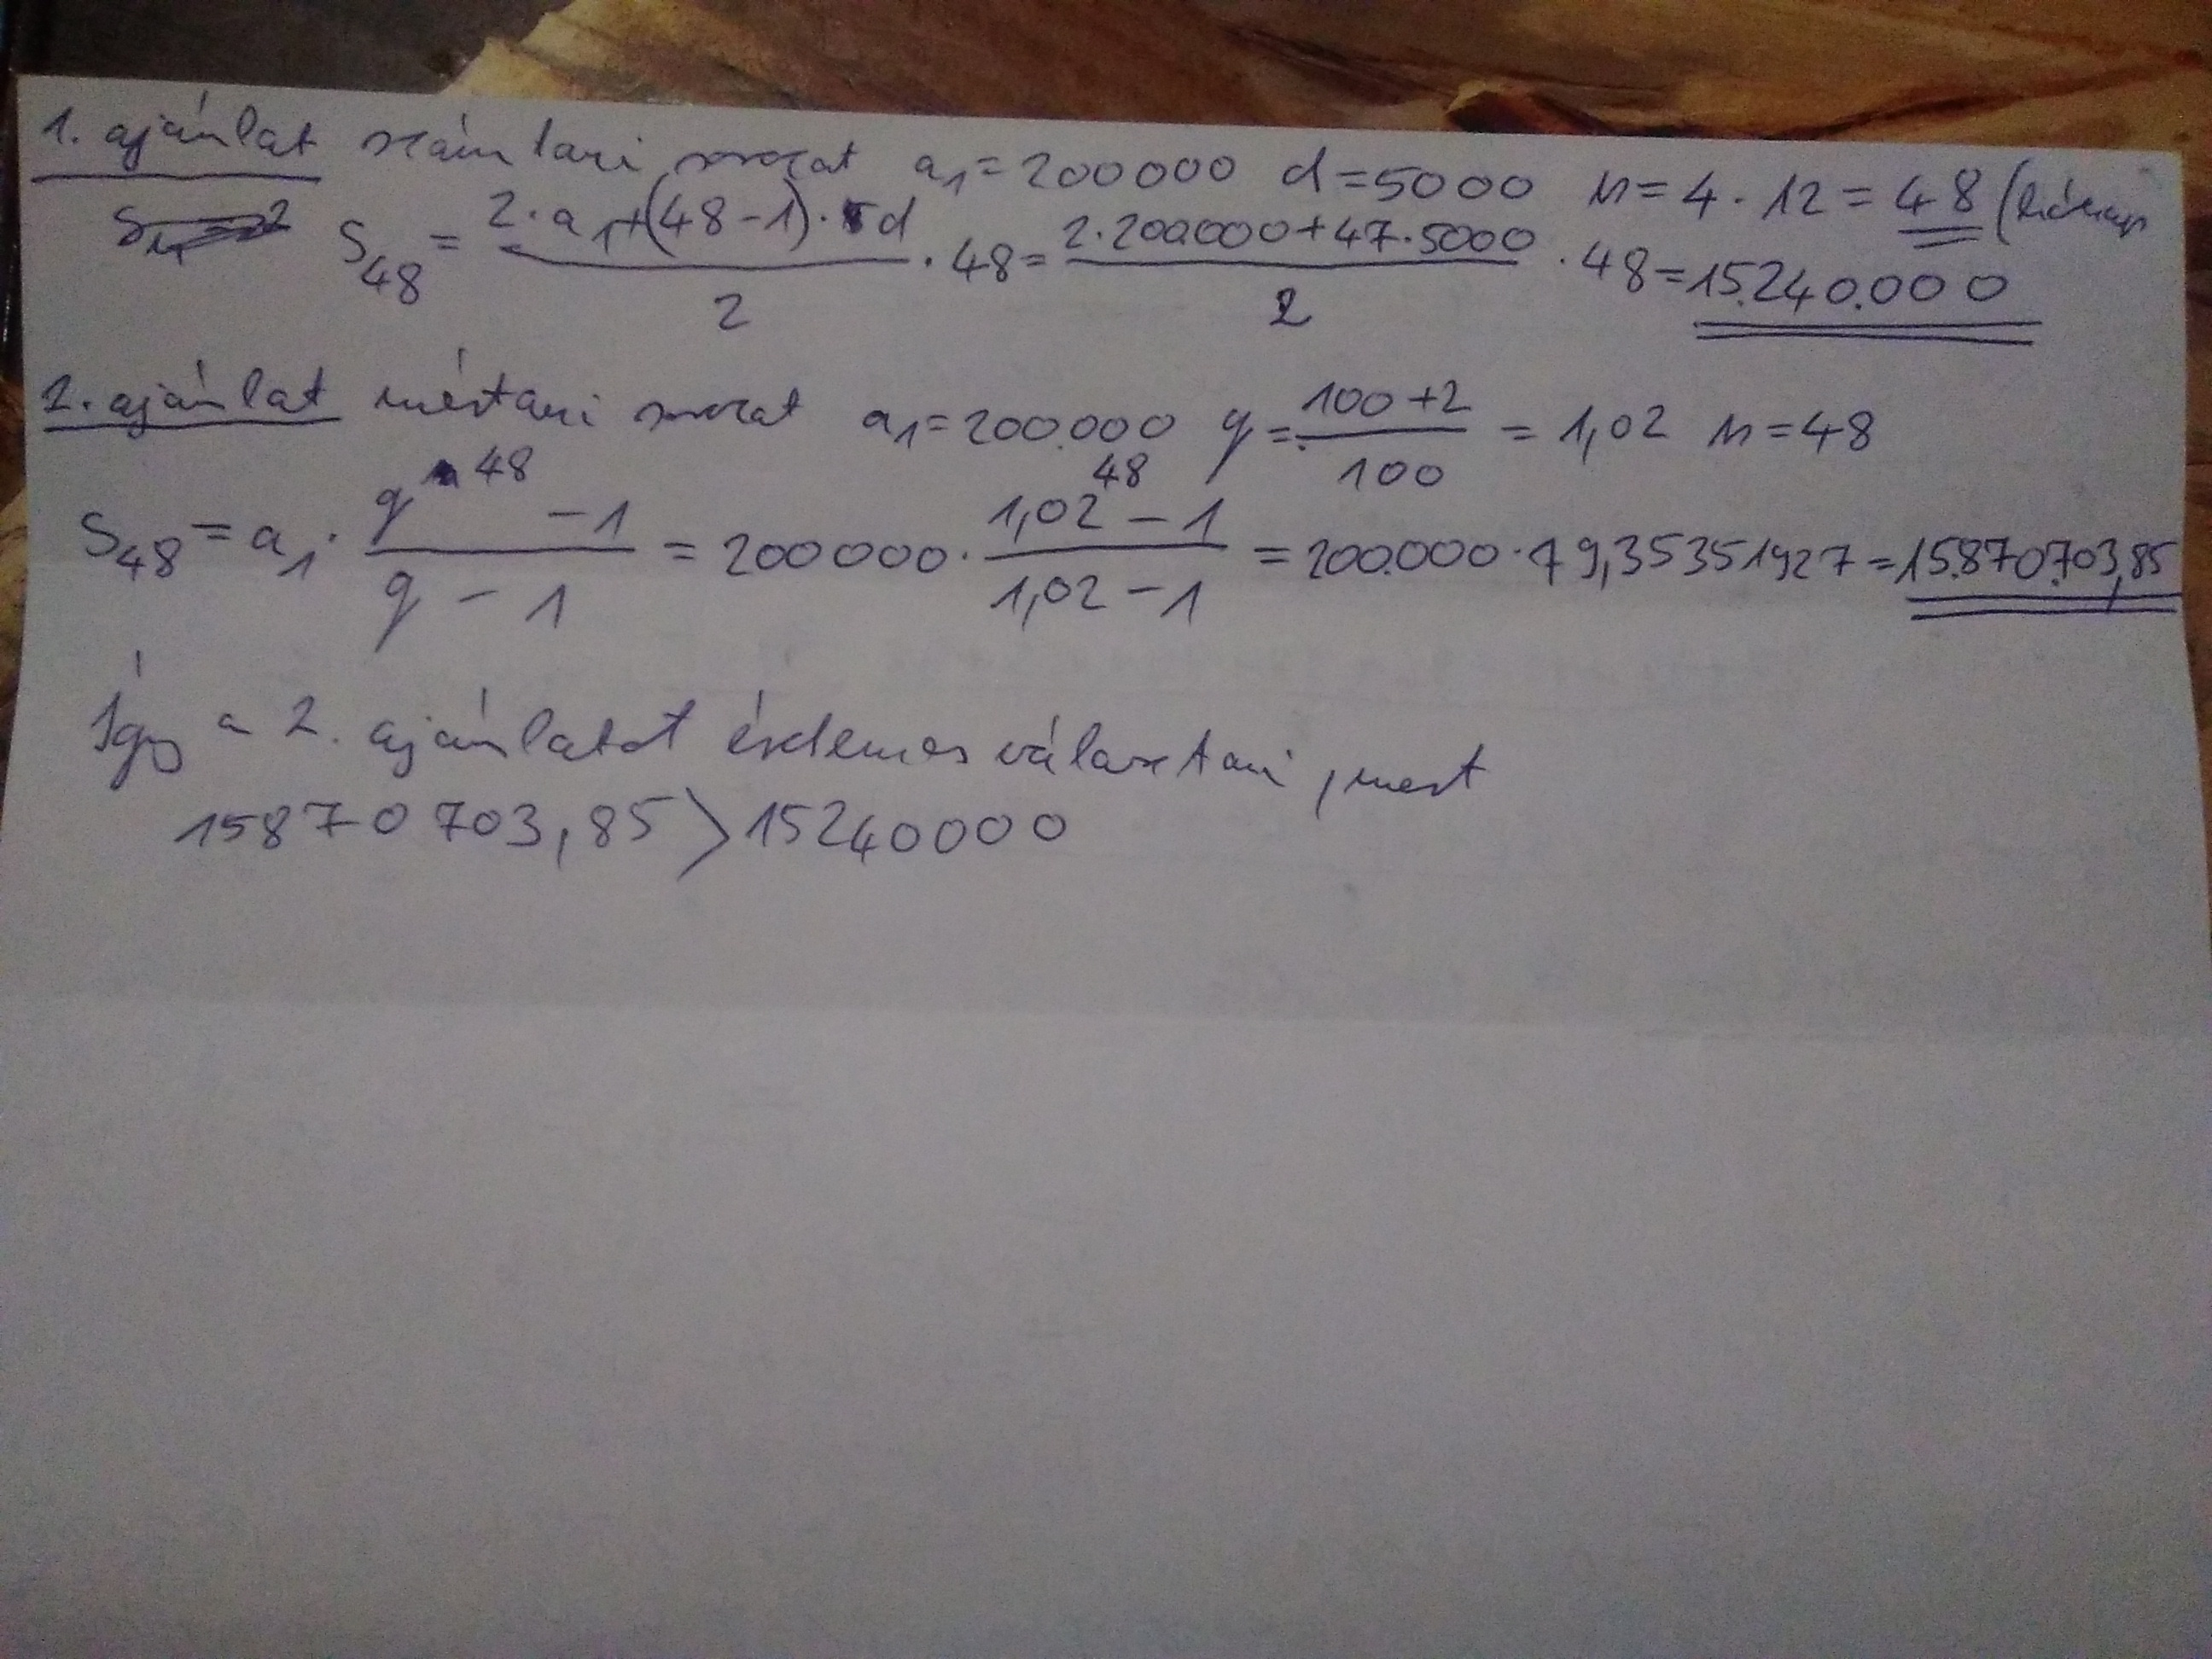 1. ajánlat számtani sorozat a₁=200000 d=5000 n=4·12=48 (hónap
S₄₈ = (2·a₁+(48-1)·d)/2 ·48= (2·200.000+47·5000)/2 ·48=15.240.000
2. ajánlat mértani sorozat a₁=200.000 q=(100+2)/100 = 1,02 n=48
S₄₈=a₁· (q⁴⁸-1)/(q-1) = 200000· (1,02⁴⁸-1)/(1,02-1) = 200.000·79,35351927=15.870.703,85
Így a 2. ajánlatot érdemes választani, mert
15870703,85>15240000